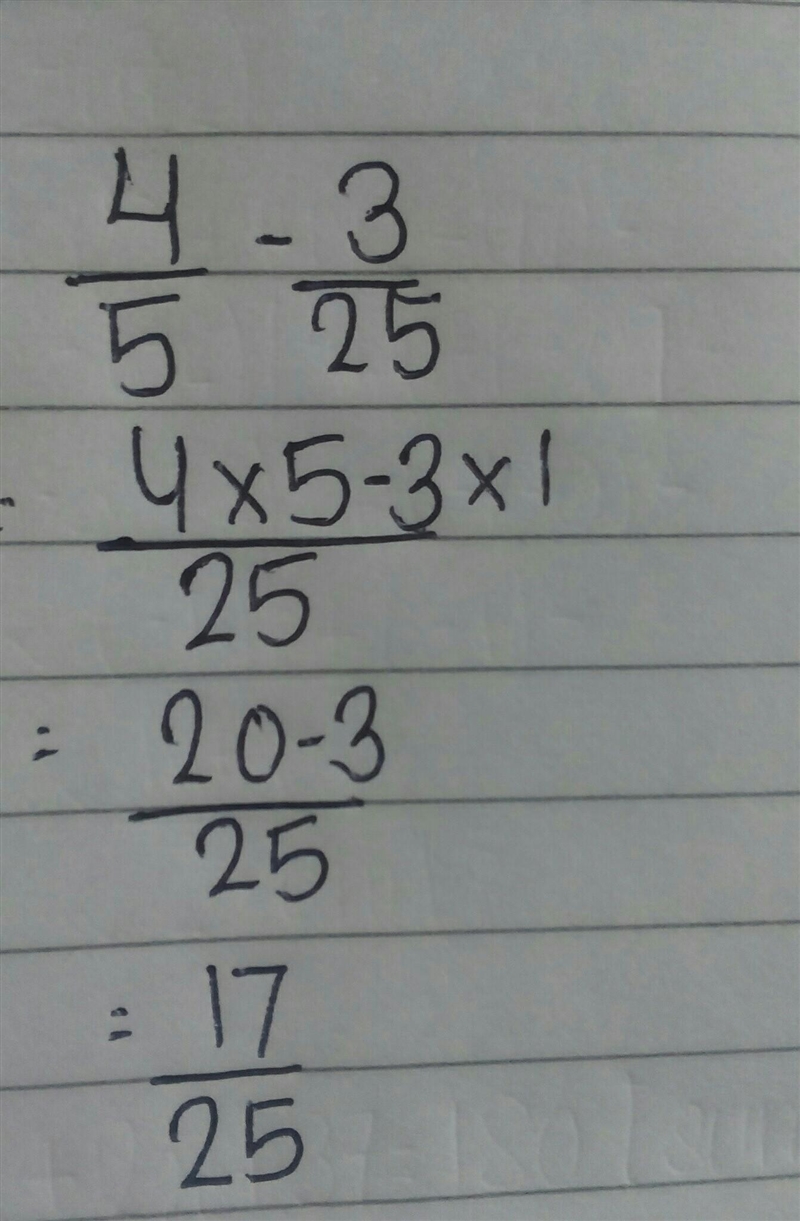 4/5 - 3/25
= 4 x 5 - 3 x 1 / 25
= 20 - 3 / 25
= 17/25